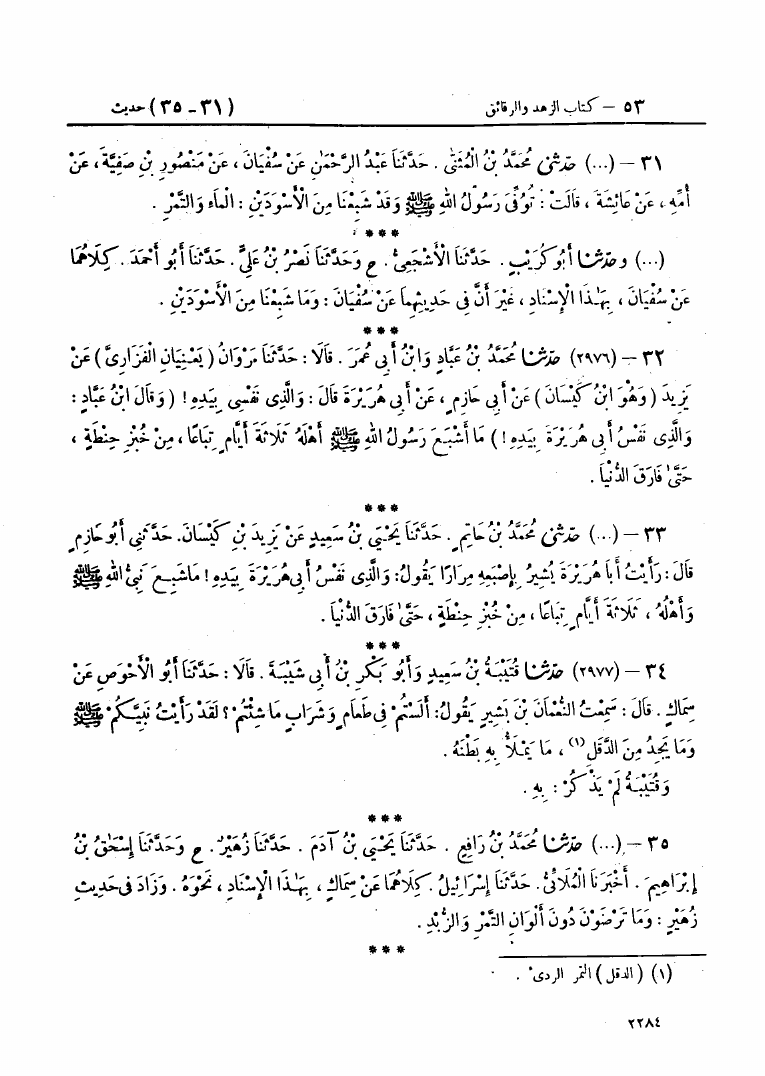 ٥٣ – كتاب الزهد والرقائق (٣١ – ٣٥) حديث
٣١ – (...) حَدَّثَنِي مُحَمَّدُ بْنُ الْمُثَنَّىٰ . حَدَّثَنَا عَبْدُ الرَّحْمَٰنِ عَنْ سُفْيَانَ ، عَنْ مَنْصُورِ بْنِ صَفِيَّةَ ، عَنْ
أُمِّهِ ، عَنْ عَائِشَةَ ، قَالَتْ : تُوُفِّيَ رَسُولُ اللهِ ﷺ وَقَدْ شَبِعْنَا مِنَ الْأَسْوَدَيْنِ : الْمَاءِ وَالتَّمْرِ .
***
(...) وحَدَّثَنَا أَبُو كُرَيْبٍ . حَدَّثَنَا الْأَشْجَعِيُّ . ح وَحَدَّثَنَا نَصْرُ بْنُ عَلِيٍّ . حَدَّثَنَا أَبُو أَحْمَدَ . كِلَاهُمَا
عَنْ سُفْيَانَ ، بِهَٰذَا الْإِسْنَادِ ، غَيْرَ أَنَّ فِي حَدِيثِهِمَا عَنْ سُفْيَانَ : وَمَا شَبِعْنَا مِنَ الْأَسْوَدَيْنِ .
***
٣٢ – (٢٩٧٦) حَدَّثَنَا مُحَمَّدُ بْنُ عَبَّادٍ وَابْنُ أَبِي عُمَرَ . قَالَا : حَدَّثَنَا مَرْوَانُ ( يَعْنِيَانِ الْفَزَارِيَّ ) عَنْ
يَزِيدَ ( وَهُوَ ابْنُ كَيْسَانَ ) عَنْ أَبِي حَازِمٍ ، عَنْ أَبِي هُرَيْرَةَ قَالَ : وَالَّذِي نَفْسِي بِيَدِهِ ! ( وَقَالَ ابْنُ عَبَّادٍ :
وَالَّذِي نَفْسُ أَبِي هُرَيْرَةَ بِيَدِهِ ! ) مَا أَشْبَعَ رَسُولُ اللهِ ﷺ أَهْلَهُ ثَلَاثَةَ أَيَّامٍ تِبَاعًا ، مِنْ خُبْزِ حِنْطَةٍ ،
حَتَّىٰ فَارَقَ الدُّنْيَا .
***
٣٣ – (...) حَدَّثَنِي مُحَمَّدُ بْنُ حَاتِمٍ . حَدَّثَنَا يَحْيَىٰ بْنُ سَعِيدٍ عَنْ يَزِيدَ بْنِ كَيْسَانَ. حَدَّثَنِي أَبُو حَازِمٍ
قَالَ : رَأَيْتُ أَبَا هُرَيْرَةَ يُشِيرُ بِإِصْبَعِهِ مِرَارًا يَقُولُ: وَالَّذِي نَفْسُ أَبِي هُرَيْرَةَ بِيَدِهِ ! مَا شَبِعَ نَبِيُّ اللهِ ﷺ
وَأَهْلُهُ ، ثَلَاثَةَ أَيَّامٍ تِبَاعًا ، مِنْ خُبْزِ حِنْطَةٍ ، حَتَّىٰ فَارَقَ الدُّنْيَا .
***
٣٤ – (٢٩٧٧) حَدَّثَنَا قُتَيْبَةُ بْنُ سَعِيدٍ وَأَبُو بَكْرِ بْنُ أَبِي شَيْبَةَ . قَالَا : حَدَّثَنَا أَبُو الْأَحْوَصِ عَنْ
سِمَاكٍ . قَالَ : سَمِعْتُ النُّعْمَانَ بْنَ بَشِيرٍ يَقُولُ: أَلَسْتُمْ فِي طَعَامٍ وَشَرَابٍ مَا شِئْتُمْ ؟ لَقَدْ رَأَيْتُ نَبِيَّكُمْ ﷺ
وَمَا يَجِدُ مِنَ الدَّقَلِ(١) ، مَا يَمْلَأُ بِهِ بَطْنَهُ .
وَقُتَيْبَةُ لَمْ يَذْكُرْ : بِهِ .
***
٣٥ – (...) حَدَّثَنَا مُحَمَّدُ بْنُ رَافِعٍ . حَدَّثَنَا يَحْيَىٰ بْنُ آدَمَ . حَدَّثَنَا زُهَيْرٌ . ح وَحَدَّثَنَا إِسْحَٰقُ بْنُ
إِبْرَاهِيمَ . أَخْبَرَنَا الْمُلَائِيُّ . حَدَّثَنَا إِسْرَائِيلُ . كِلَاهُمَا عَنْ سِمَاكٍ ، بِهَٰذَا الْإِسْنَادِ ، نَحْوَهُ . وَزَادَ فِي حَدِيثِ
زُهَيْرٍ : وَمَا تَرْضَوْنَ دُونَ أَلْوَانِ التَّمْرِ وَالزُّبْدِ .
***
(١) ( الدقل ) التمر الردىء .
٢٢٨٤